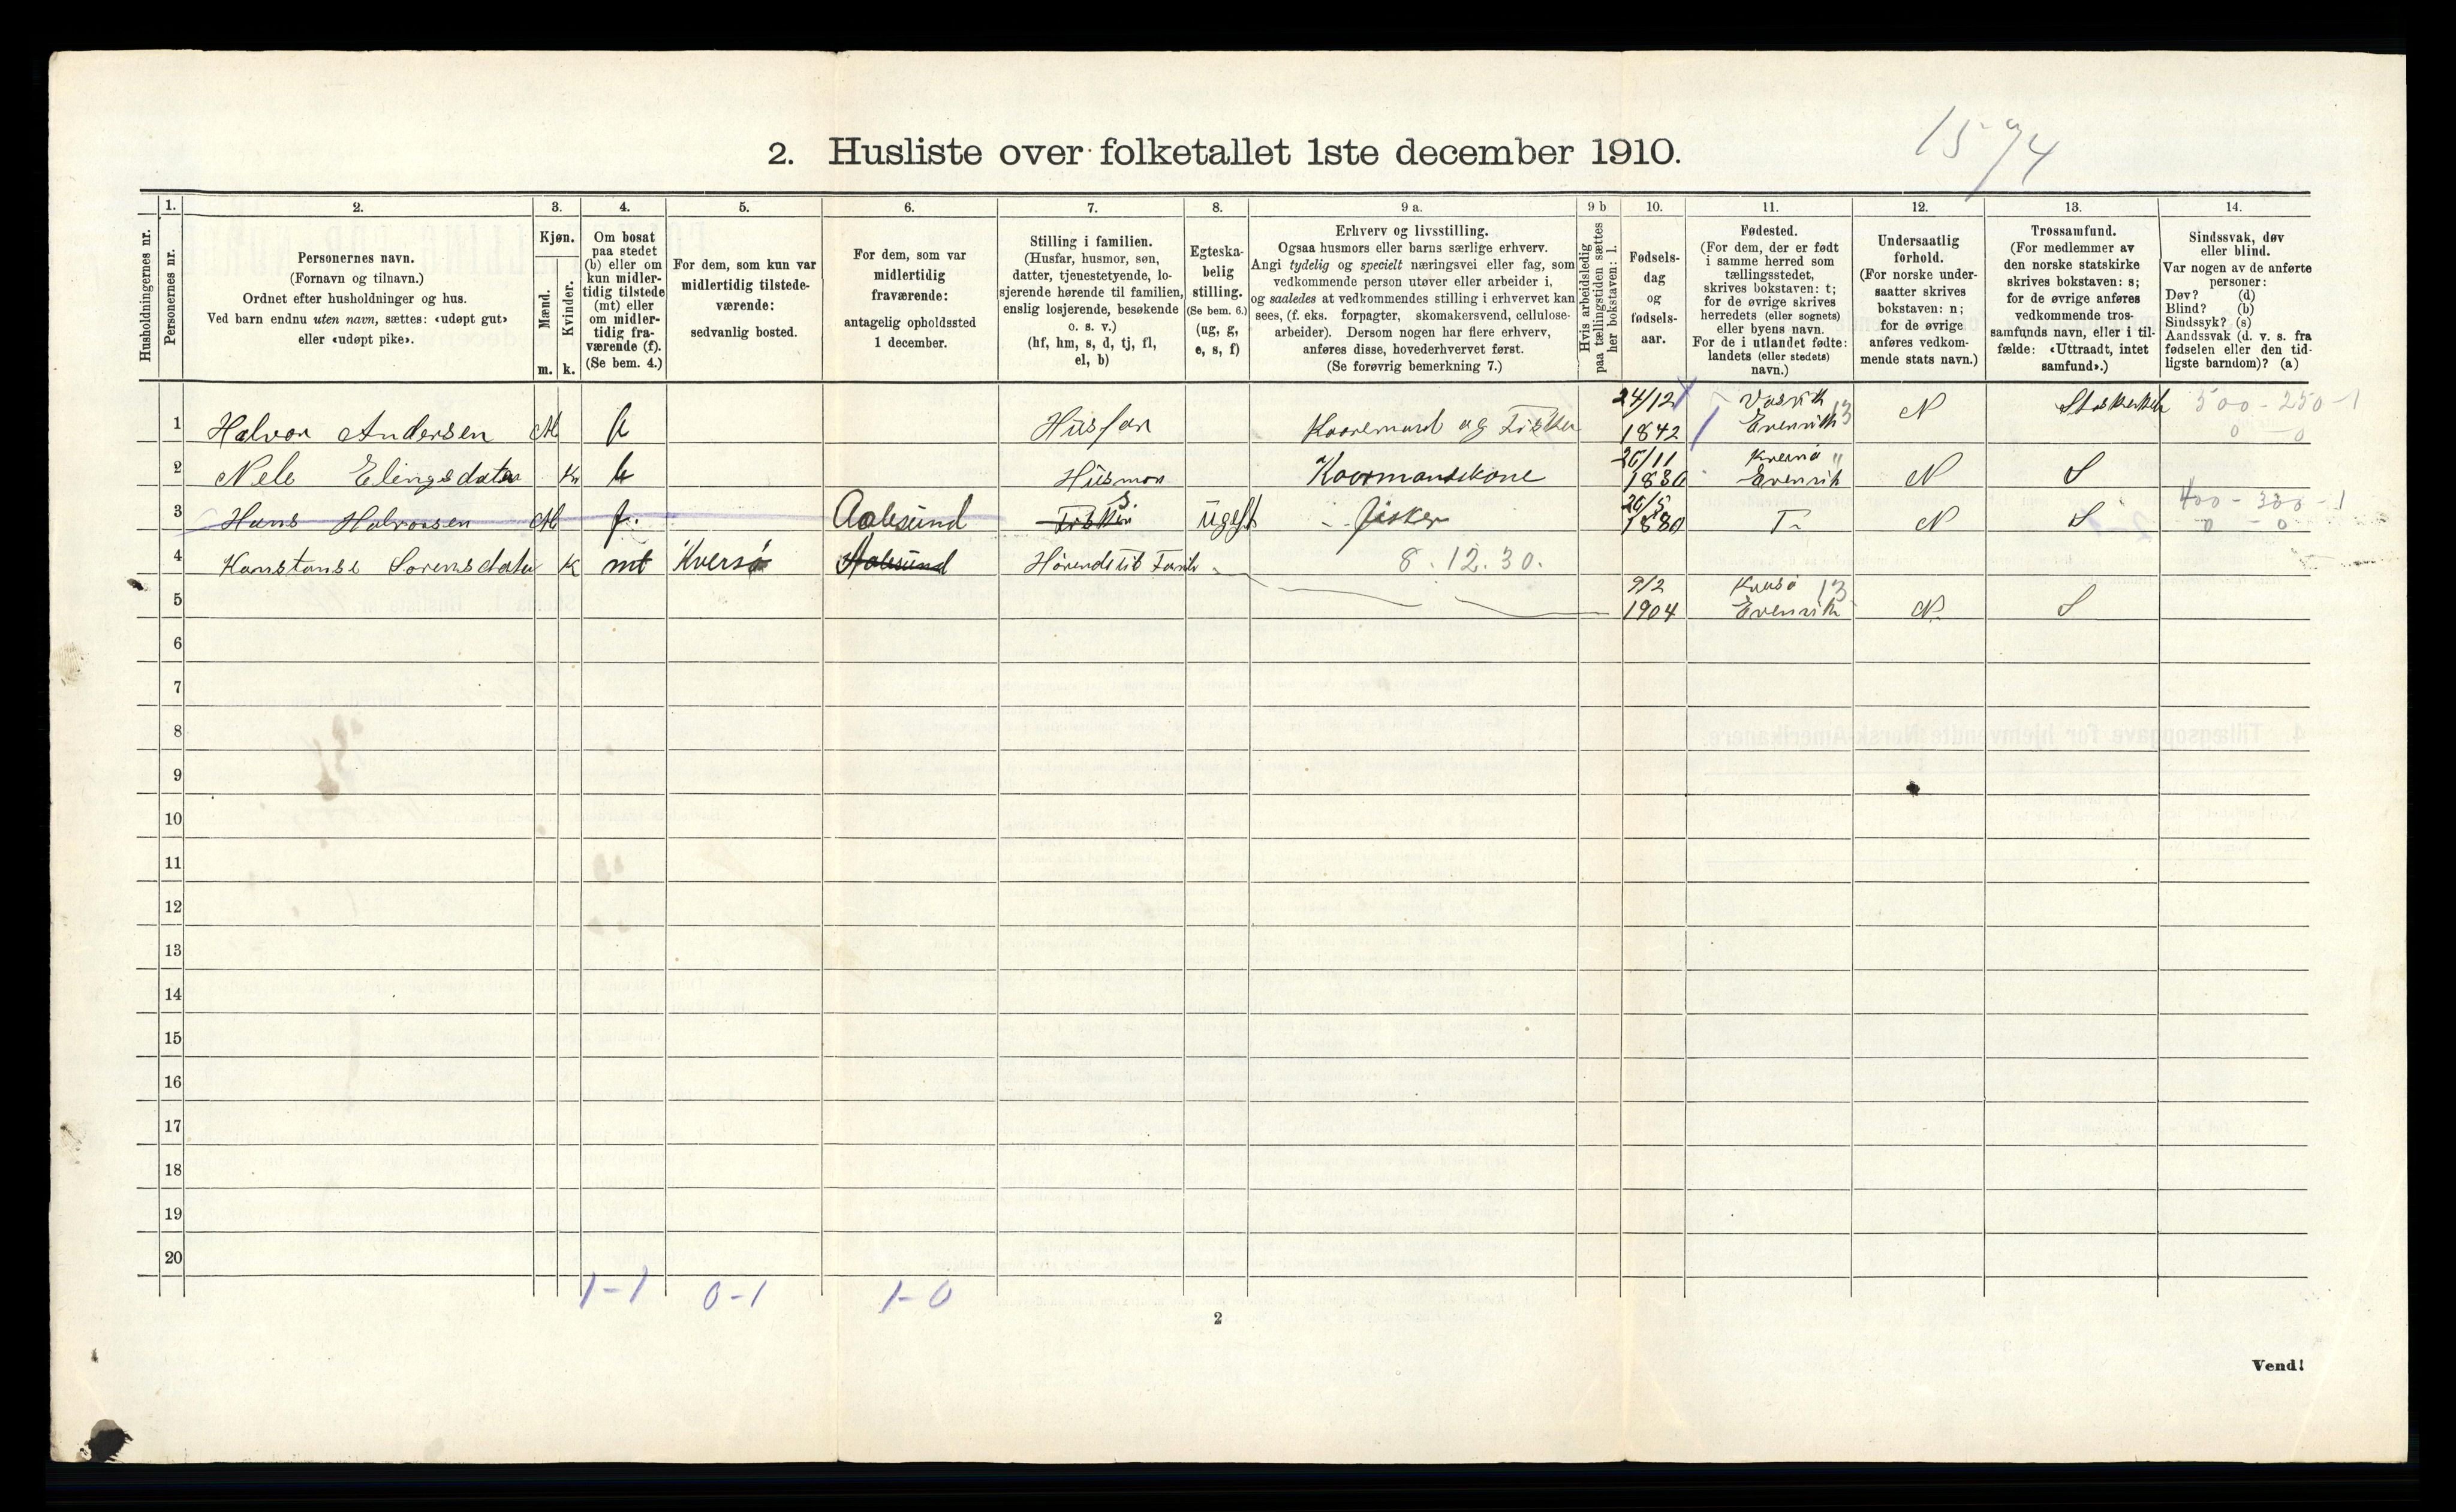 1594
2. Husliste over folketallet 1ste december 1910.
1. 2. 3. 4. 5. 6. 7. 8. 9 a. 9 b 10. 11. 12. 13. 14.
Husholdningernes nr.
Personernes nr.
Personernes navn.
(Fornavn og tilnavn.)
Ordnet efter husholdninger og hus.
Ved barn endnu uten navn, sættes: «udøpt gut»
eller «udøpt pike».
Kjøn.
Mænd.
Kvinder.
m. k.
Om bosat
paa stedet
(b) eller om
kun midler-
tidig tilstede
(mt) eller
om midler-
tidig fra-
værende (f).
(Se bem. 4.)
For dem, som kun var
midlertidig tilstede-
værende:
sedvanlig bosted.
For dem, som var
midlertidig
fraværende:
antagelig opholdssted
1 december.
Stilling i familien.
(Husfar, husmor, søn,
datter, tjenestetyende, lo-
sjerende hørende til familien,
enslig losjerende, besøkende
o. s. v.)
(hf, hm, s, d, tj, fl,
el, b)
Egteska-
belig
stilling.
(Se bem. 6.)
(ug, g,
e, s, f)
Erhverv og livsstilling.
Ogsaa husmors eller barns særlige erhverv.
Angi tydelig og specielt næringsvei eller fag, som
vedkommende person utøver eller arbeider i,
og saaledes at vedkommendes stilling i erhvervet kan
sees, (f. eks. forpagter, skomakersvend, cellulose-
arbeider). Dersom nogen har flere erhverv,
anføres disse, hovederhvervet først.
(Se forøvrig bemerkning 7.)
Hvis arbeidsledig
paa tællingstiden sættes
her bokstaven: l.
Fødsels-
dag
og
fødsels-
aar.
Fødested.
(For dem, der er født
i samme herred som
tællingsstedet,
skrives bokstaven: t;
for de øvrige skrives
herredets (eller sognets)
eller byens navn.
For de i utlandet fødte:
landets (eller stedets)
navn.)
Undersaatlig
forhold.
(For norske under-
saatter skrives
bokstaven: n;
for de øvrige
anføres vedkom-
mende stats navn.)
Trossamfund.
(For medlemmer av
den norske statskirke
skrives bokstaven: s;
for de øvrige anføres
vedkommende tros-
samfunds navn, eller i til-
fælde: «Uttraadt, intet
samfund».)
Sindssvak, døv
eller blind.
Var nogen av de anførte
personer:
Døv? (d)
Blind? (b)
Sindssyk? (s)
Aandssvak (d. v. s. fra
fødselen eller den tid-
ligste barndom)? (a)
24/12 500-250-1
1 Halvor Andersen M b Husfar og Fisker 1842 Evenvik 13 N 0-0
26/11
2 Nele Elingsdater K b Husmor 1830 Evenvik N S
S 26/5 400-300-1
3 Hans Halvorsen M f. Aalesund Fisker Ugift Fisker 1880 T N S 0-0
4 Konstanse Sorensdater K mt Kversø Aalesund Hørende til Famil 8.12.30.
9/2 13
5 1904 Evenvik N S
6
7
8
9
10
11
12
13
14
15
16
17
18
19
20
1-1 0-1 1-0
2
Vend!